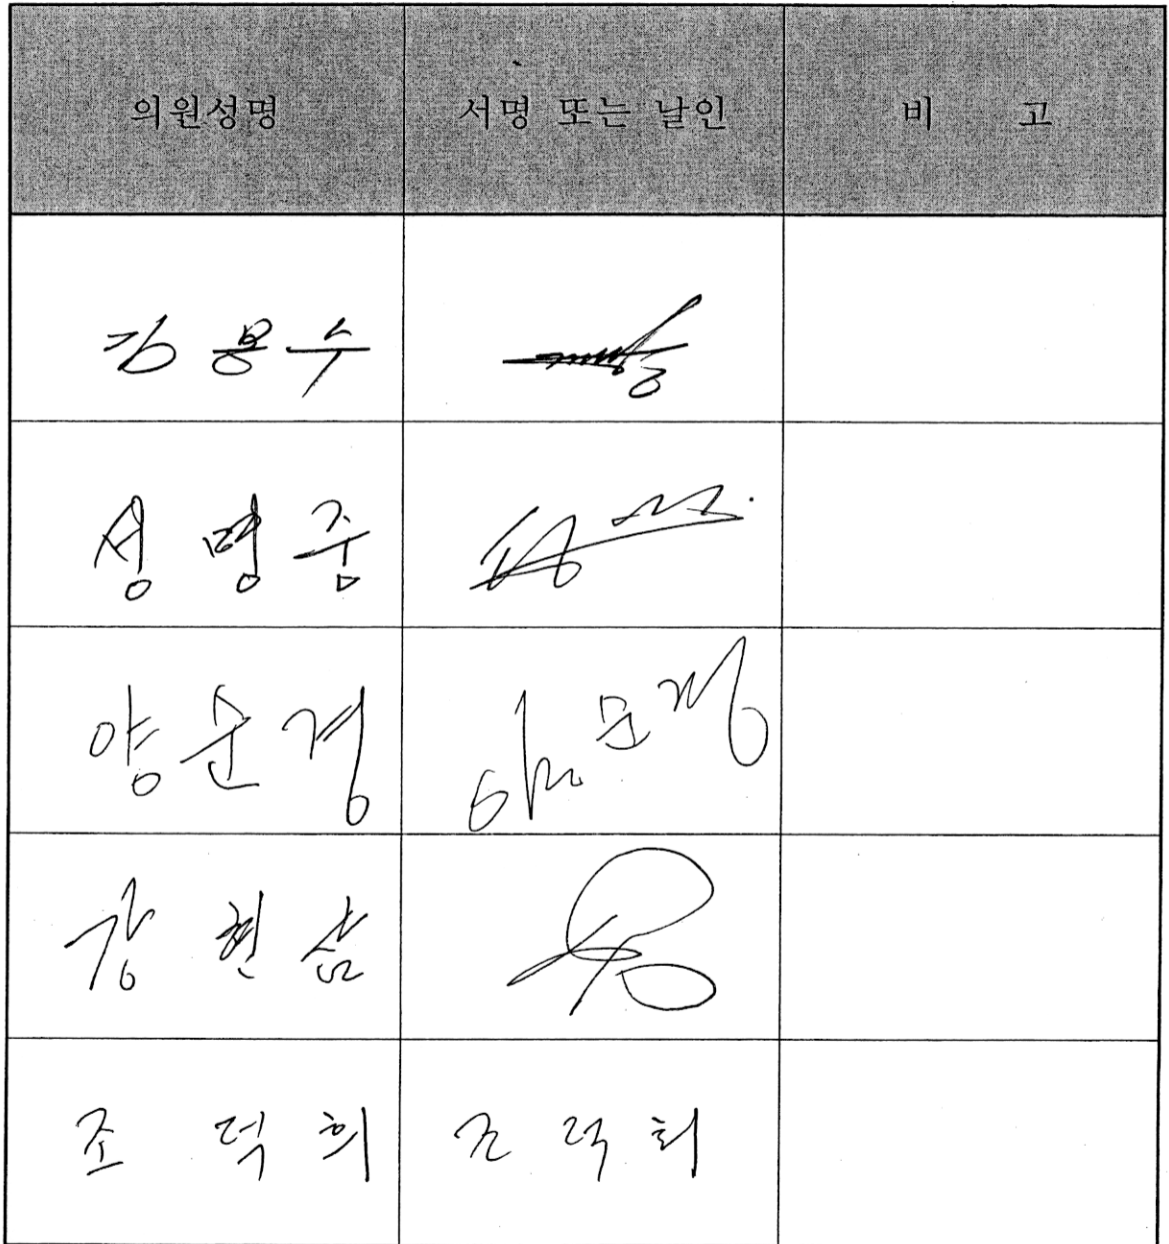 의원성명 서명 또는 날인 비 고
김용수
성명중
양순경 양순경
강현삼
조 덕희 조덕희